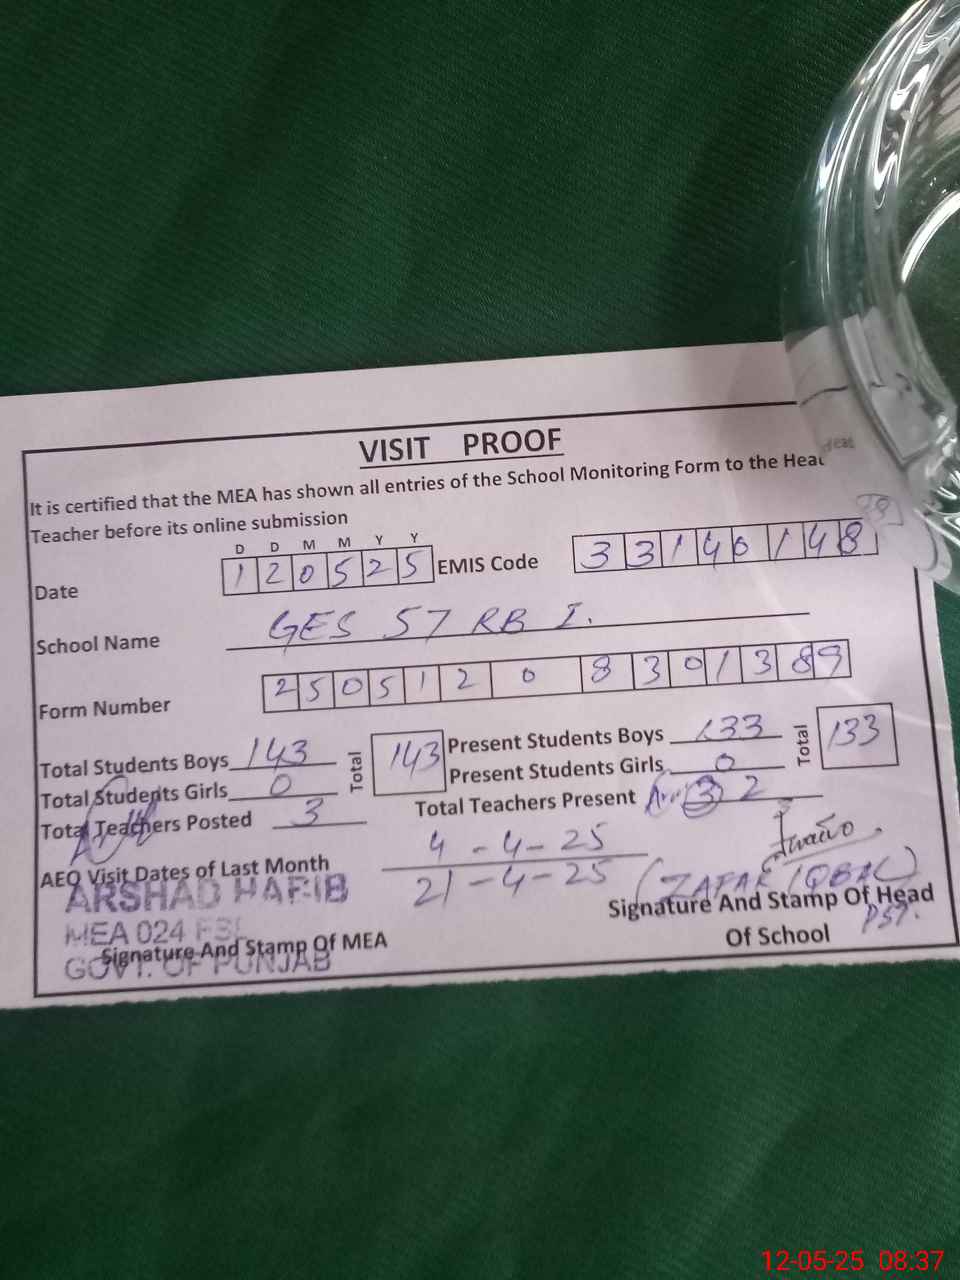 VISIT PROOF
It is certified that the MEA has shown all entries of the School Monitoring Form to the Head
Teacher before its online submission
D D M M Y Y
Date 1 2 0 5 2 5 EMIS Code 3 3 1 4 0 1 4 8
School Name GES 57 RB I.
Form Number 2 5 0 5 1 2 0 8 3 0 1 3 8 9
Total Students Boys 143 Total 143 Present Students Boys 133 Total 133
Total Students Girls 0 Present Students Girls 0
Total Teachers Posted 3 Total Teachers Present 3 2
AEO Visit Dates of Last Month 4-4-25
21-4-25
(ZAFAR IQBAL)
PST.
ARSHAD HABIB
MEA 024 FSD
GOVT. OF PUNJAB
Signature And Stamp Of MEA
Signature And Stamp Of Head
Of School
12-05-25 08:37